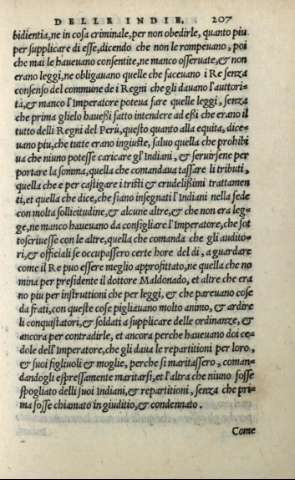 DELLE INDIE. 207
bidientia, ne in cosa criminale, per non obedirle, quanto piu
per supplicare di esse, dicendo che non le rompeuano, poi
che mai le haueuano consentite, ne manco osseruate, & non
erano leggi, ne obligauano quelle che faceuano i Re senza
consenso del commune de i Regni che gli dauano l'auttori-
tà, & manco l'Imperatore poteua fare quelle leggi, senza
che prima glielo hauessi fatto intendere ad essi che erano il
tutto delli Regni del Perù, questo quanto alla equita, dice-
uano piu, che tutte erano ingiuste, saluo quella che prohibi
ua che niuno potesse caricare gl'Indiani, & seruirsene per
portare la somma, quella che comandaua tassare li tributi,
quella che e per castigare i tristi & crudelissimi trattamen
ti, et quella che dice, che siano insegnati l'Indiani nella fede
con molta sollicitudine, & alcune altre, & che non era leg-
ge, ne manco haueuano da consigliare l'Imperatore, che sot
toscriuesse con le altre, quella che comanda che gli audito-
ri, & officiali se occupassero certe hore del di, a guardare
come il Re puo essere meglio approfittato, ne quella che no
mina per presidente il dottore Maldonado, et altre che era
no piu per instruttioni che per leggi, & che pareuano cose
da frati, con queste cose pigliauano molto animo, & ardire
li conquistatori, & soldati a supplicare delle ordinanze, &
ancora per contradirle, et ancora perche haueuano doi ce-
dole dell'Imperatore, che gli daua le repartitioni per loro,
& suoi figliuoli & moglie, perche si maritassero, coman-
dandogli espressamente maritarsi, et l'altra che niuno fosse
spogliato delli suoi Indiani, & repartitioni, senza che pri-
ma fosse chiamato in giuditio, & condennato.
Come